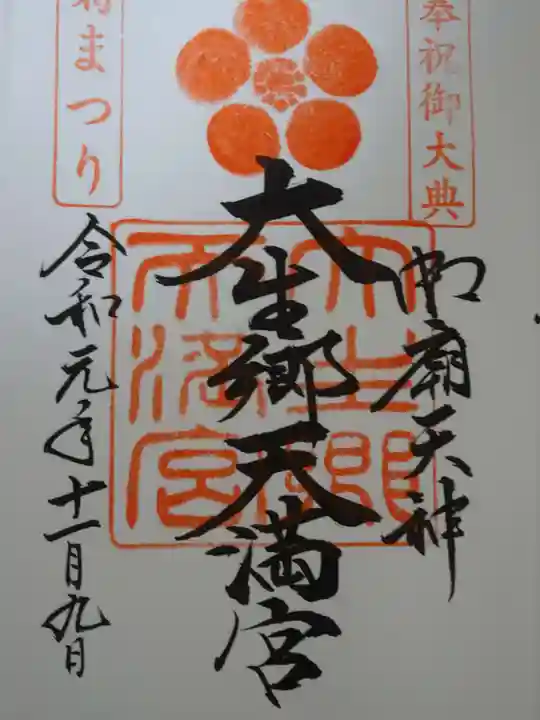 奉祝御大典
御廟天神
大生郷天満宮
大生郷天満宮
まつり
令和元年十一月九日